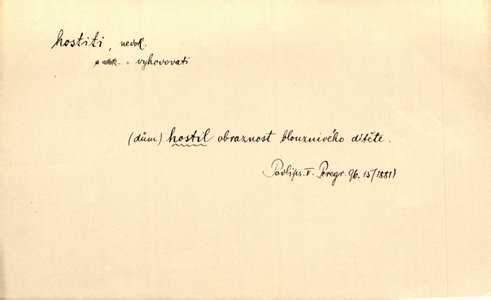 hostiti, nedok.
= vyhovovati
(dům) hostil obraznost blouznivého dítěte.
Podlips. V. Peregr. 96. (5/1881)